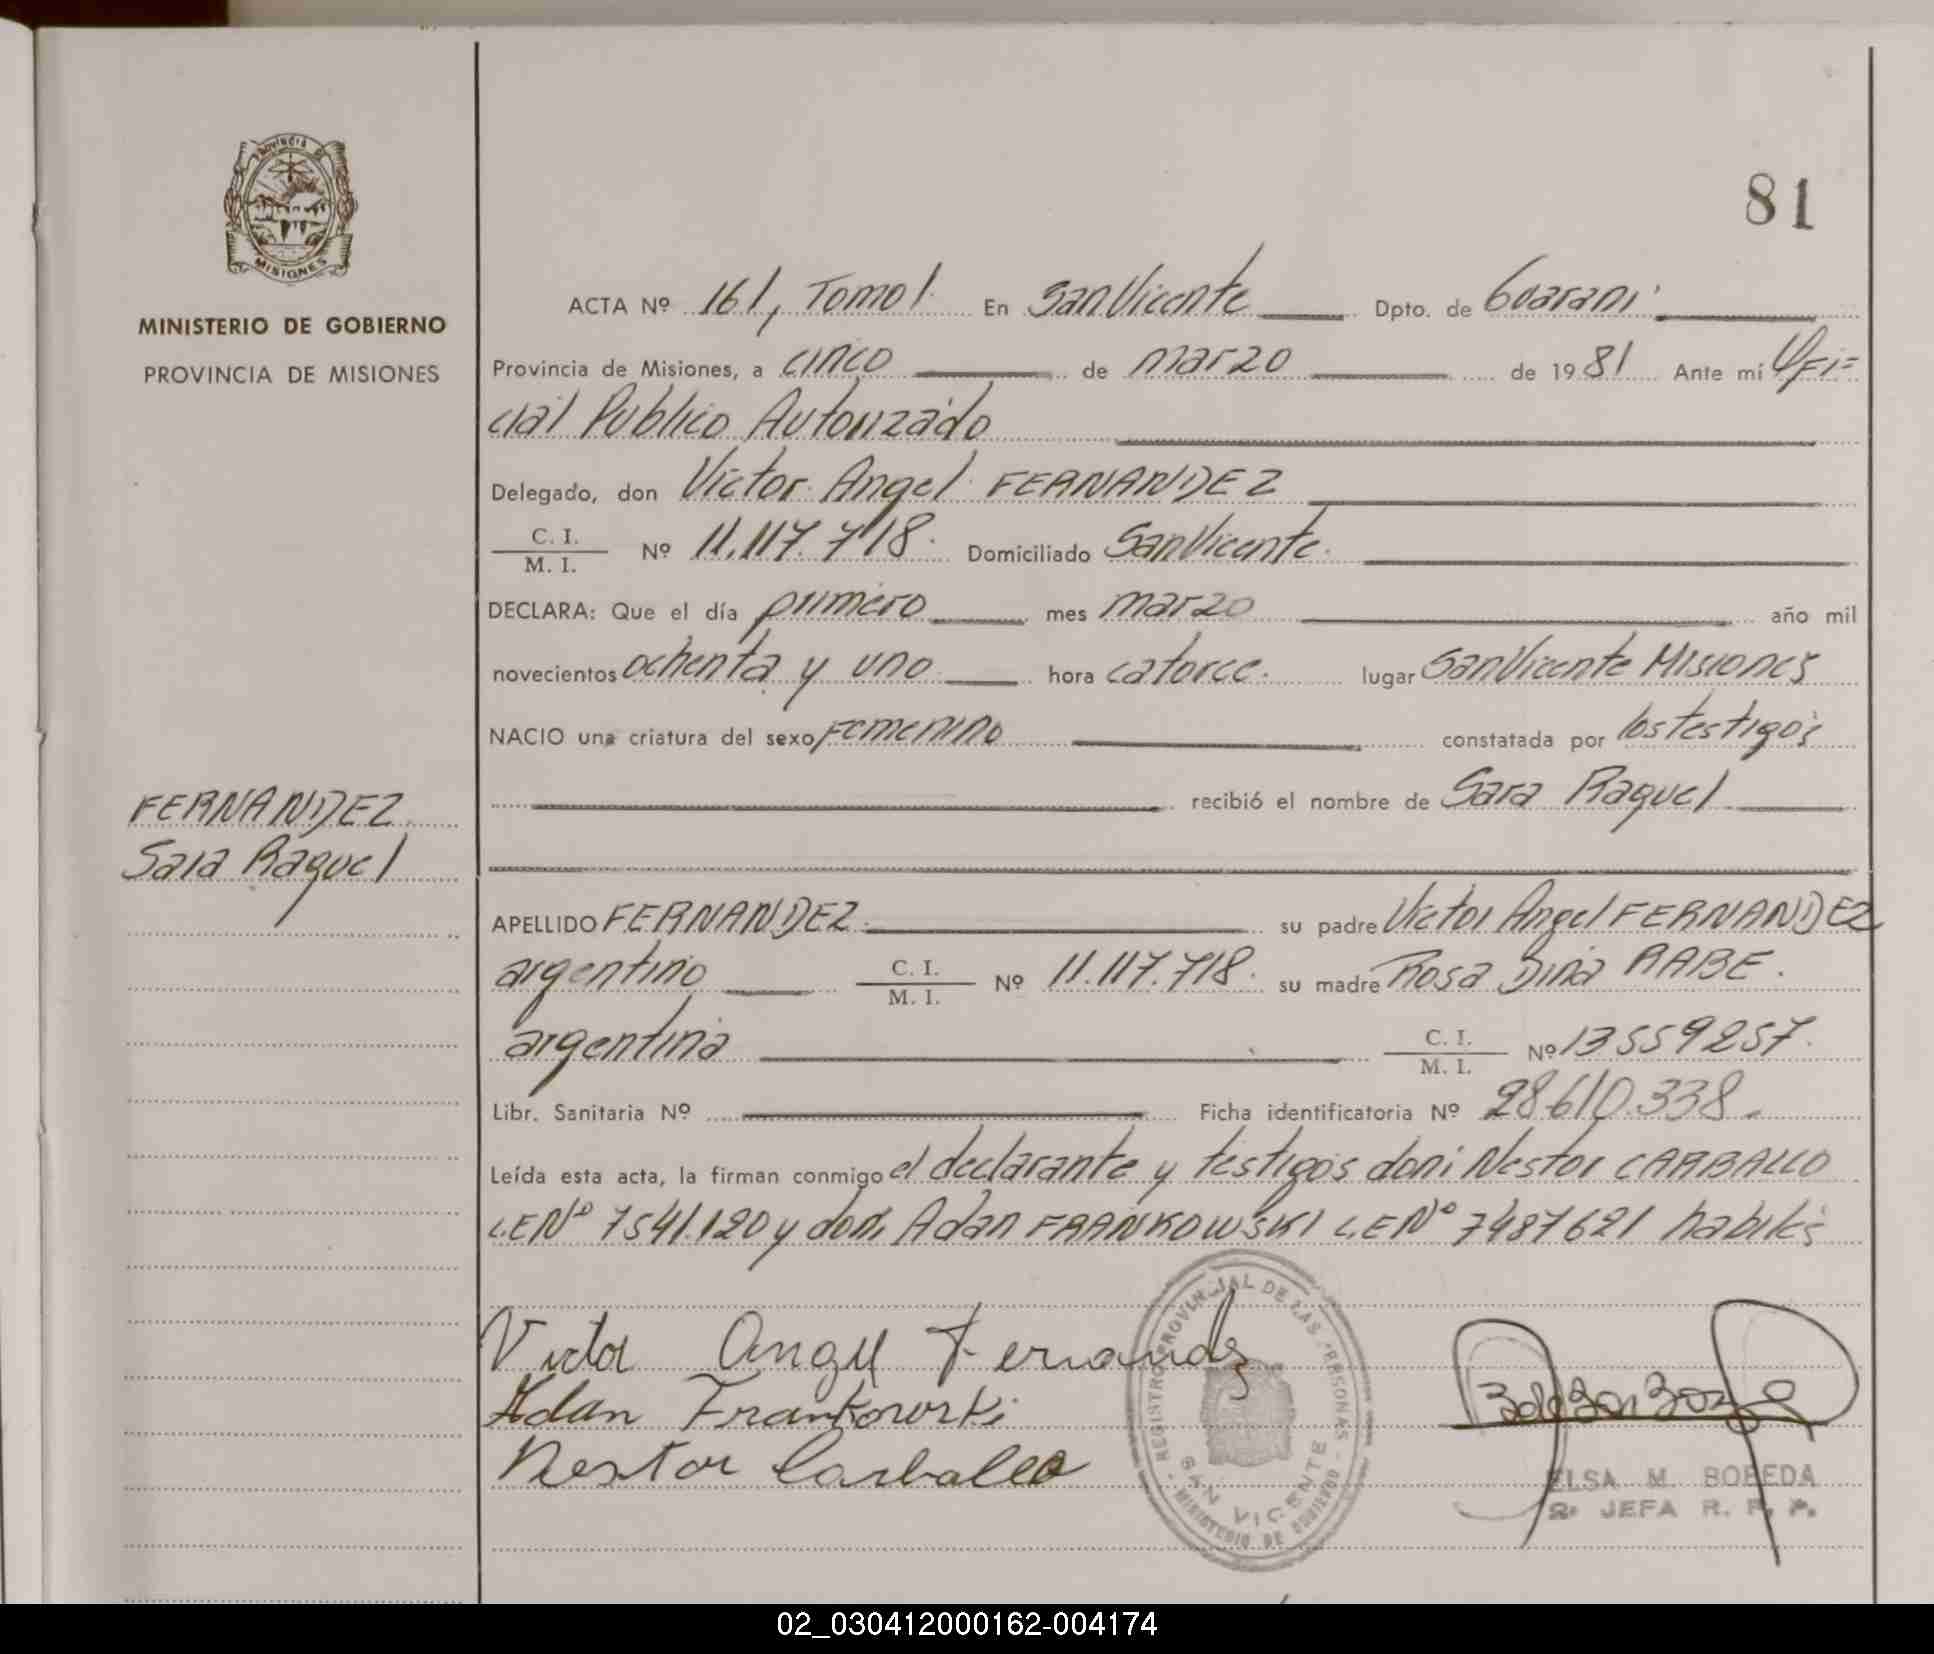 PROVINCIA DE
MISIONES
MINISTERIO DE GOBIERNO
PROVINCIA DE MISIONES
81
ACTA Nº 161, Tomo 1. En San Vicente Dpto. de Guaraní
Provincia de Misiones, a cinco de marzo de 1981 Ante mí Ofi=
cial Publico Autorizado
Delegado, don Victor Angel FERNANDEZ
C. I.
M. I. Nº 11.117.718. Domiciliado San Vicente.
DECLARA: Que el día primero mes marzo año mil
novecientos ochenta y uno hora catorce. lugar San Vicente Misiones
NACIO una criatura del sexo Femenino constatada por los testigos
recibió el nombre de Sara Raquel
FERNANDEZ
Sara Raquel
APELLIDO FERNANDEZ su padre Victor Angel FERNANDEZ
argentino C. I.
M. I. Nº 11.117.718. su madre Rosa Dina RABE.
argentina C. I.
M. I. Nº 13559257.
Libr. Sanitaria Nº Ficha identificatoria Nº 28610.338.
Leída esta acta, la firman conmigo el declarante y testigos don: Nestor CARBALLO
L.E Nº 7541.120 y don: Adan FRANKOWSKI L.E Nº 7487621 habiles
Victor Angel Fernandez
Adan Frankowski
Nestor Carballo
REGISTRO PROVINCIAL DE LAS PERSONAS
SAN VICENTE
MINISTERIO DE GOBIERNO
ELSA M. BOBEDA
JEFA R. P. P.
02_030412000162-004174